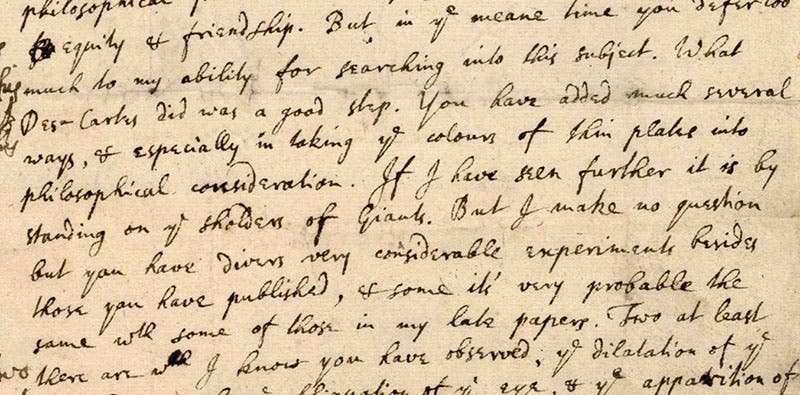 philosophical
equity & friendship. But in yᵉ meane time you defer too
much to my ability for searching into this subject. What
Des-Cartes did was a good step. You have added much several
ways, & especially in taking yᵉ colours of thin plates into
philosophical consideration. If I have seen further it is by
standing on yᵉ sholders of Giants. But I make no question
but you have divers very considerable experiments besides
those you have published, & some it's very probable the
same wᵗʰ some of those in my late papers. Two at least
there are wᶜʰ I know you have observed, yᵉ dilatation of yᵉ
of yᵉ eye, & yᵉ apparition of